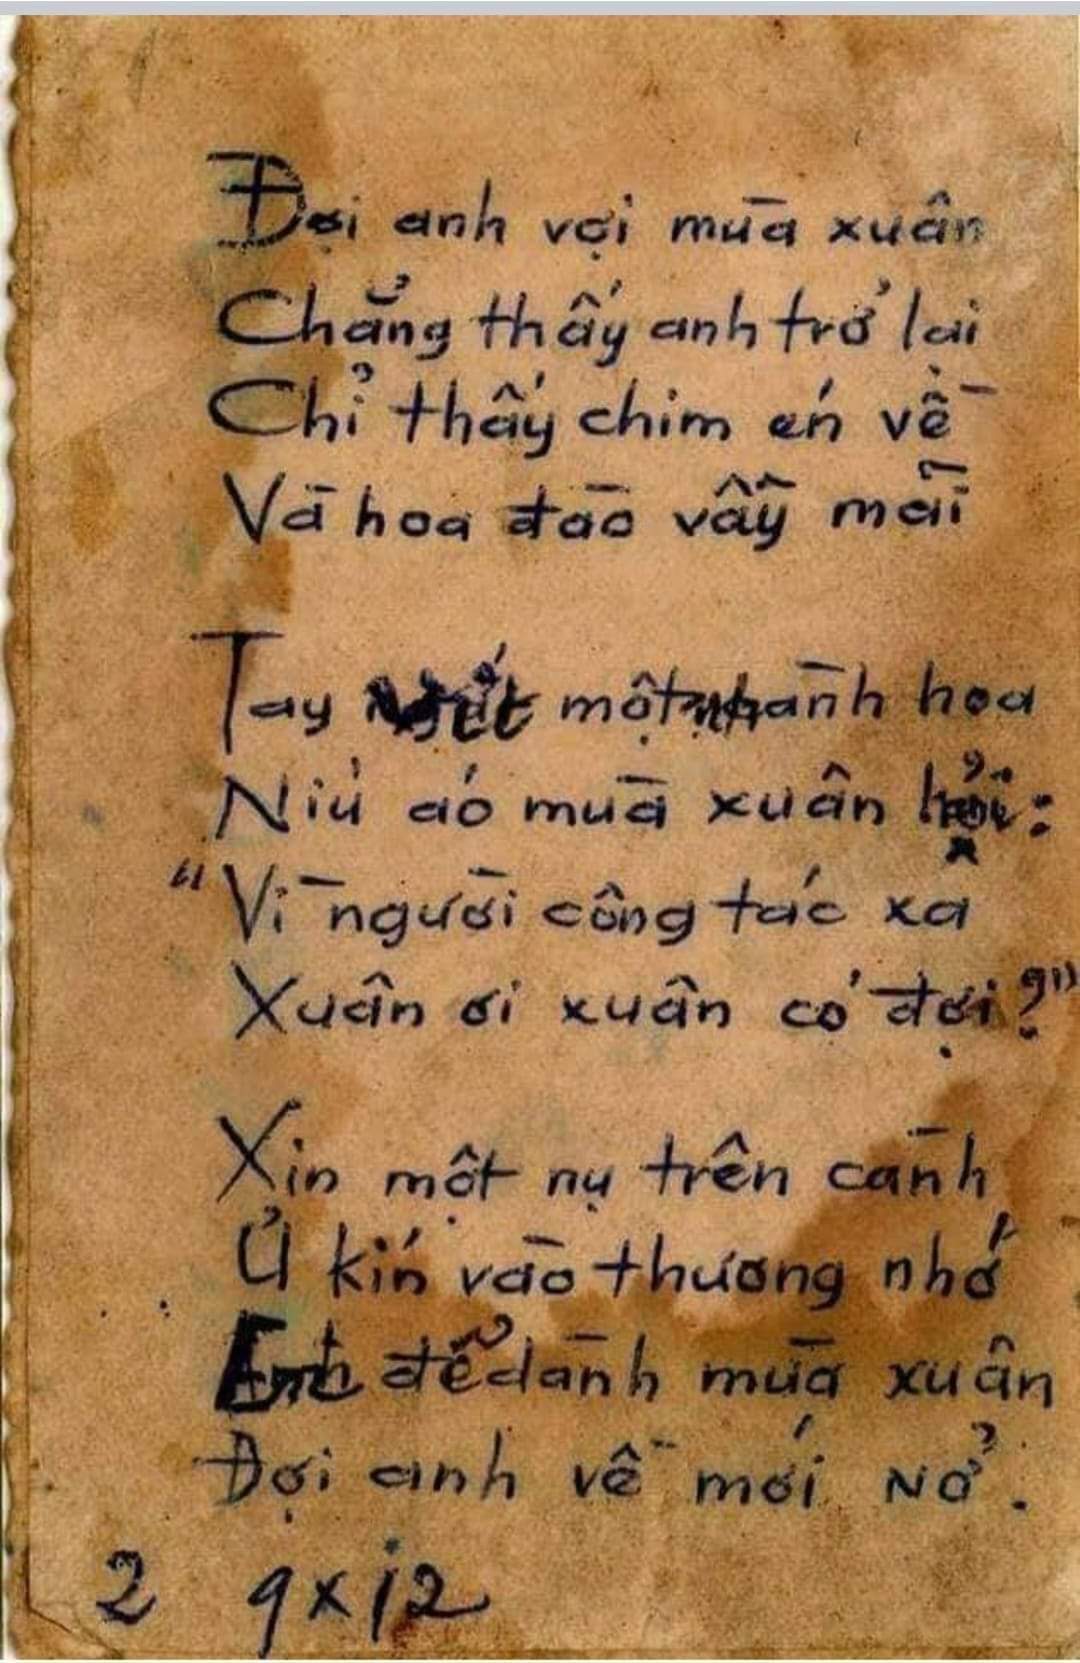 Đợi anh vợi mùa xuân
Chẳng thấy anh trở lại
Chỉ thấy chim én về
Và hoa đào vẫy mãi
Tay một nhành hoa
Níu áo mùa xuân hỏi:
"Vì người công tác xa
Xuân ơi xuân có đợi?"
Xin một nụ trên cành
Ủ kín vào thương nhớ
Em để dành mùa xuân
Đợi anh về mới nở.
2 9x12